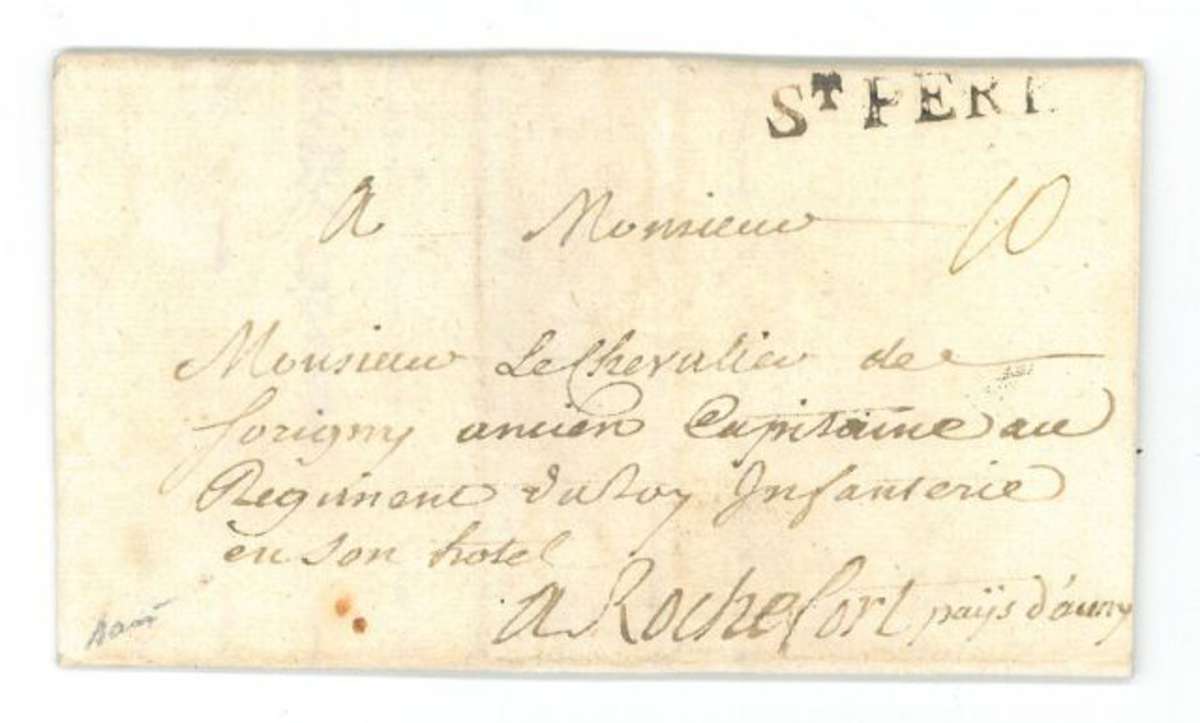 ST PERE
A Monsieur 10
Monsieur Le Chevalier de
forigny ancien Capitaine au
Régiment du Roy Infanterie
en son hotel
A Rochefort païs d'auny